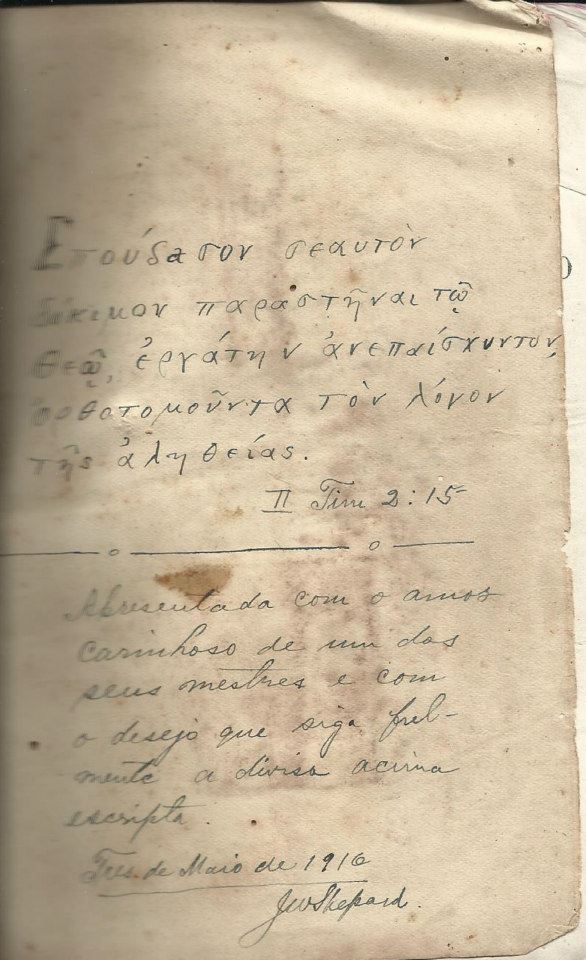 Σπούδασον σεαυτὸν
δόκιμον παραστῆναι τῷ
θεῷ, ἐργάτην ἀνεπαίσχυντον,
ὀρθοτομοῦντα τὸν λόγον
τῆς ἀληθείας.
II Tim 2:15
Apresentada com o amor
carinhoso de um dos
seus mestres e com
o desejo que siga fiel-
mente a divisa acima
escripta.
Tres de Maio de 1916
JWShepard.